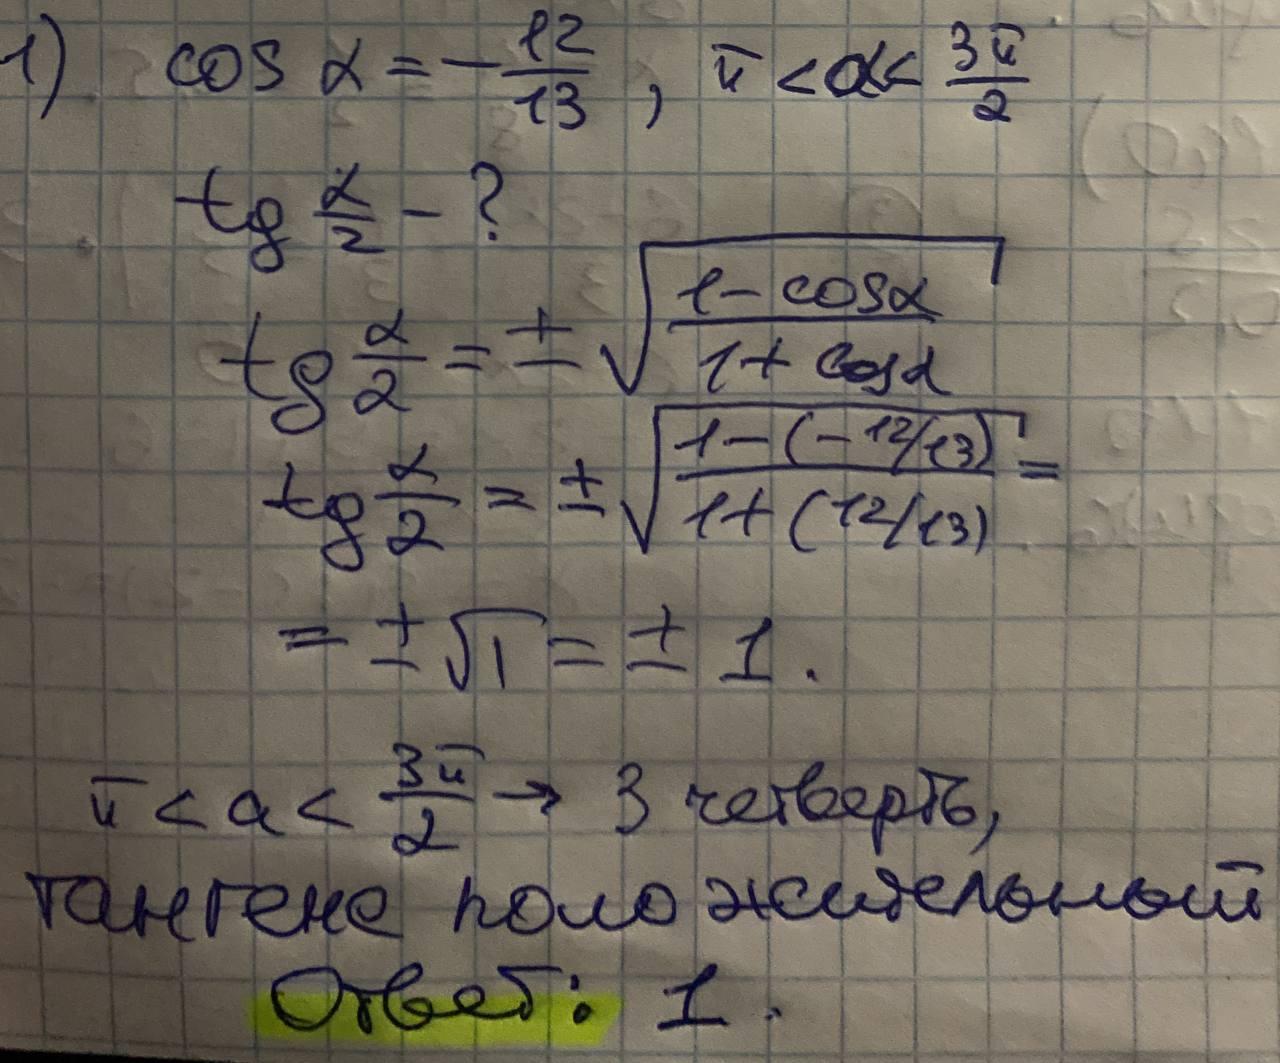 1) cos α = - 12/13, π < α < 3π/2
tg α/2 - ?
tg α/2 = ± √((1 - cosα)/(1 + cosα))
tg α/2 = ± √((1 - (-12/13))/(1 + (12/13))) =
= ± √1 = ± 1.
π < a < 3π/2 → 3 четверть,
тангенс положительный
Ответ: 1.